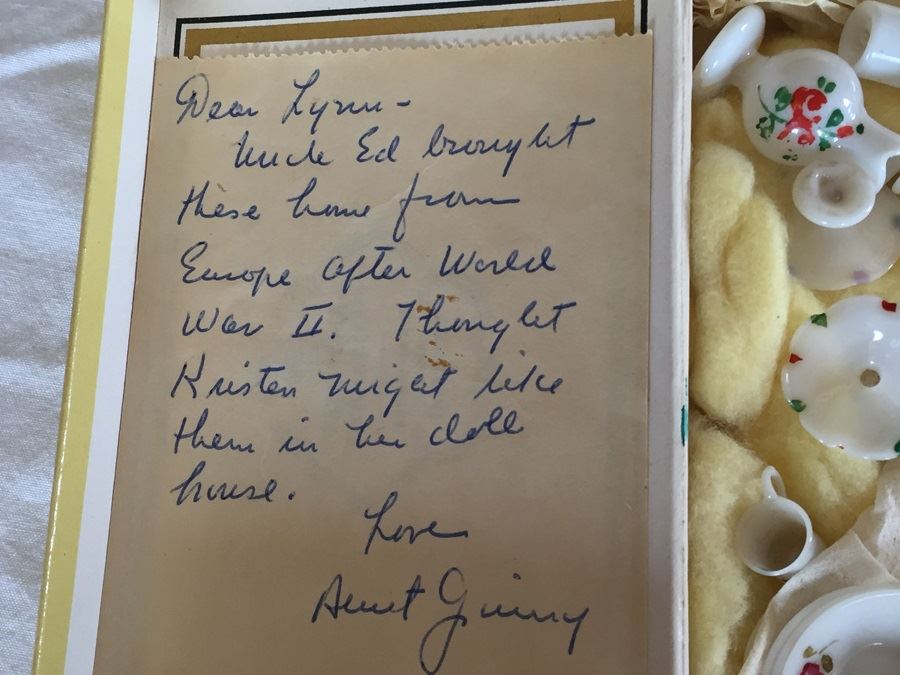 Dear Lynn -
Uncle Ed brought
these home from
Europe after World
War II. Thought
Kristen might like
them in her doll
house.
Love
Aunt Ginny